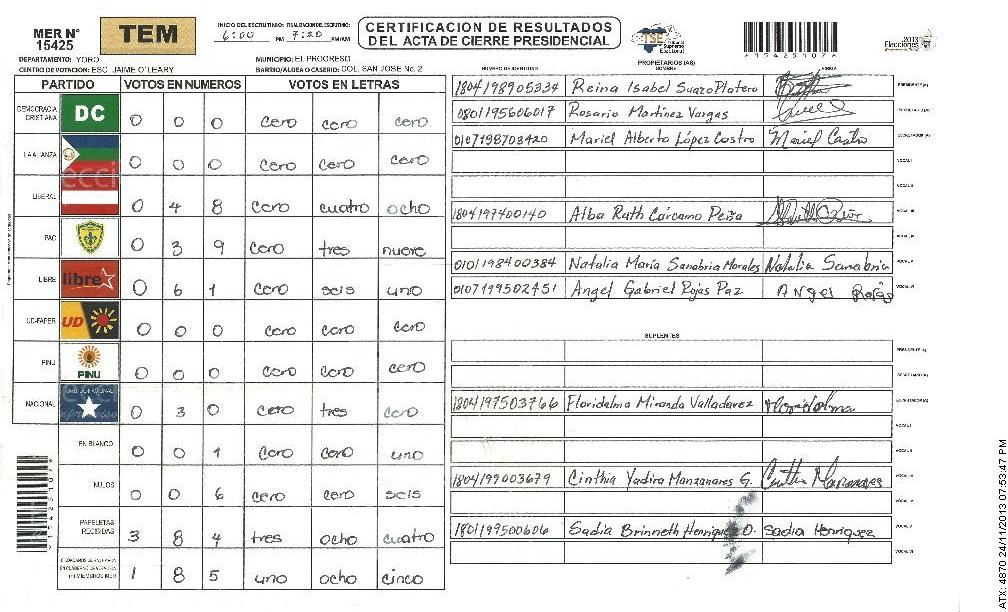 MER N° 15425
TEM
INICIO DEL ESCRUTINIO: 6:00 PM FINALIZACION DE ESCRUTINIO: 7:20 PM/AM
CERTIFICACION DE RESULTADOS
DEL ACTA DE CIERRE PRESIDENCIAL
TSE Tribunal Supremo Electoral
*15425107*
2013 Elecciones
DEPARTAMENTO: YORO
MUNICIPIO: EL PROGRESO
CENTRO DE VOTACION: ESC. JAIME O'LEARY
BARRIO/ALDEA O CASERIO: COL. SAN JOSE No. 2
PARTIDO VOTOS EN NUMEROS VOTOS EN LETRAS
DEMOCRACIA CRISTIANA DC 0 0 0 cero cero cero
LA ALIANZA 0 0 0 cero cero cero
LIBERAL 0 4 8 cero cuatro ocho
PAC 0 3 9 cero tres nueve
LIBRE libre 0 6 1 cero seis uno
UD-FAPER UD 0 0 0 cero cero cero
PINU PINU 0 0 0 cero cero cero
NACIONAL 0 3 0 cero tres cero
EN BLANCO 0 0 1 cero cero uno
NULOS 0 0 6 cero cero seis
PAPELETAS RECIBIDAS 3 8 4 tres ocho cuatro
(+) MIEMBROS MER 1 8 5 uno ocho cinco
PROPIETARIOS (AS)
NUMERO DE IDENTIDAD NOMBRE FIRMA
1804198905334 Reina Isabel Suazo Plotero PRESIDENTE (A)
0801195606017 Rosario Martinez Vargas SECRETARIO (A)
0107198703420 Mariel Alberto López Castro Mariel Castro ESCRUTADOR (A)
VOCAL I
VOCAL II
1804197400140 Alba Ruth Cárcamo Peña VOCAL III
VOCAL IV
0101198400384 Natalia María Sanabria Morales Natalia Sanabria VOCAL V
0107199502451 Angel Gabriel Rojas Paz Angel Rojas VOCAL VI
SUPLENTES
PRESIDENTE (A)
SECRETARIO (A)
1804197503766 Floridalma Miranda Valladarez Floridalma ESCRUTADOR (A)
VOCAL I
VOCAL II
1804199003679 Cinthia Yadira Manzanares G. Cinthia Manzanares VOCAL III
VOCAL IV
1801199500606 Sadia Brinneth Henriquez O. Sadia Henriquez VOCAL V
VOCAL VI
*15425107*
ATX: 4870 24/11/2013 07:53:47 PM